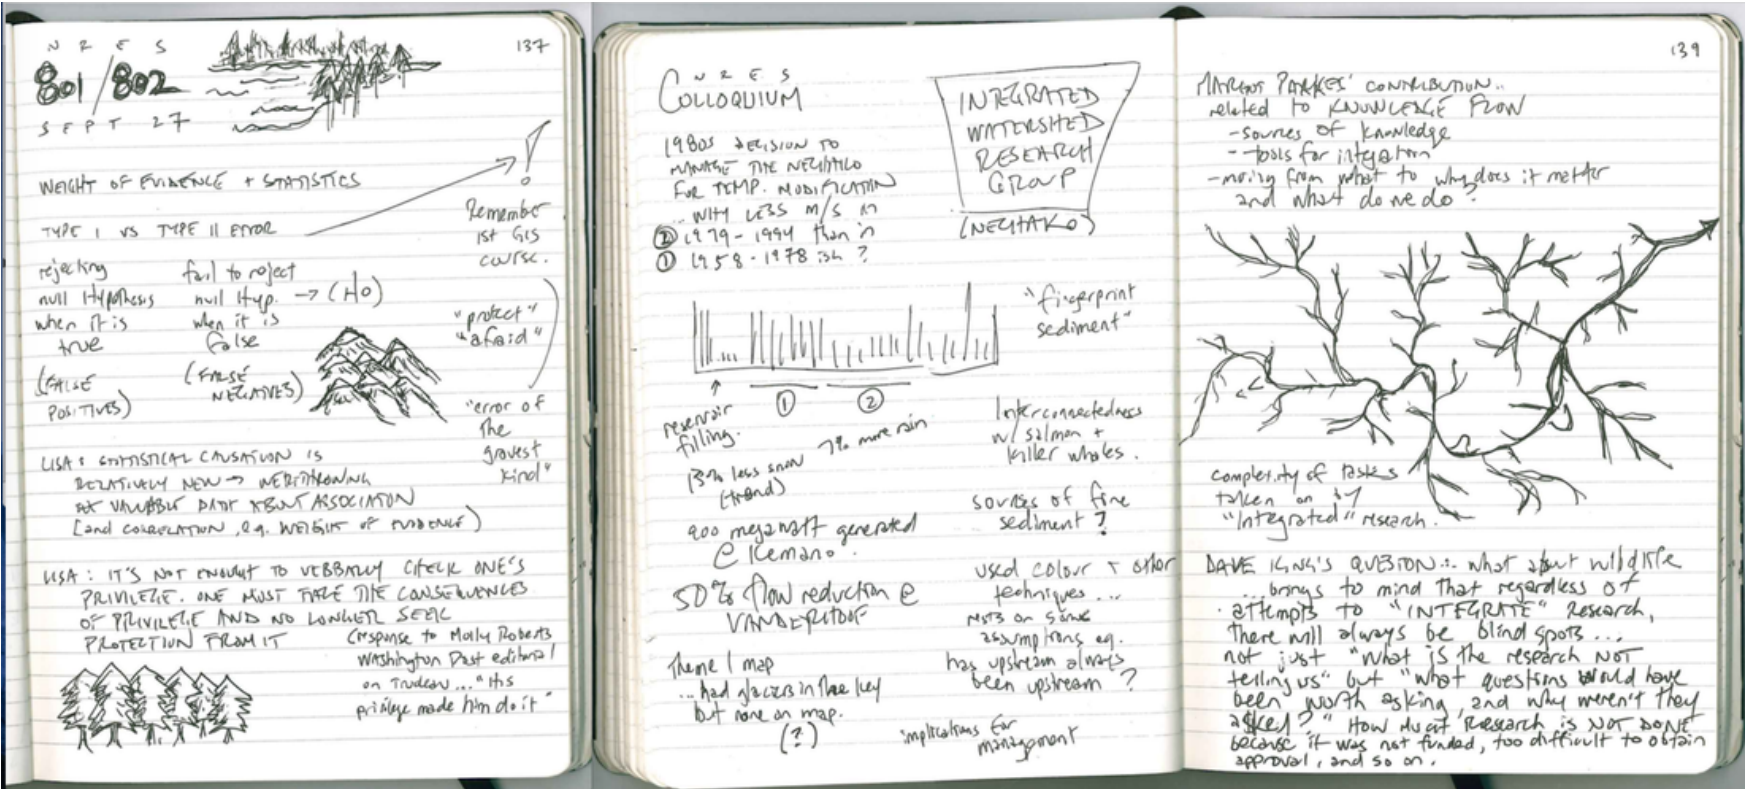 N R E S
137
801/802
SEPT 27
WEIGHT OF EVIDENCE + STATISTICS
!
TYPE I VS TYPE II ERROR
Remember
1st GIS
course.
rejecting
null Hypothesis
when it is
true
(FALSE
POSITIVES)
fail to reject
null Hyp. → (H0)
when it is
false
(FALSE
NEGATIVES)
"protect"
"afraid"
"error of
the
gravest
kind"
LISA: STATISTICAL CAUSATION IS
RELATIVELY NEW →
VALUABLE DATA ABOUT ASSOCIATION
(and CORRELATION, e.g. WEIGHT OF EVIDENCE)
LISA: IT'S NOT ENOUGH TO VERBALLY CHECK ONE'S
PRIVILEGE. ONE MUST FACE THE CONSEQUENCES
OF PRIVILEGE AND NO LONGER SEEK
PROTECTION FROM IT
(response to Molly Roberts
Washington Post editorial
on Trudeau ... "His
privilege made him do it"
N R E S
COLLOQUIUM
INTEGRATED
WATERSHED
RESEARCH
GROUP
(NECHAKO)
1980s DECISION TO
MANAGE THE NECHAKO
FOR TEMP. MODIFICATION
... WHY LESS m/s in
② 1979-1994 than in
① 1958-1978 ish ?
"fingerprint
sediment"
↑
reservoir
filling.
①
②
13% less snow
(trend)
7% more rain
Interconnectedness
w/ salmon +
killer whales.
900 megawatt generated
@ Kemano.
sources of fine
sediment ?
50% flow reduction @
VANDERHOOF
used colour + other
techniques ...
rests on some
assumptions eg.
has upstream always
been upstream ?
Theme 1 map
... had glaciers in the key
but none on map.
(?)
implications for
management
139
MARGOT PARKES' CONTRIBUTION..
related to KNOWLEDGE FLOW
- sources of knowledge
- tools for integration
- moving from what to why does it matter
and what do we do ?
complexity of tasks
taken on by
"Integrated" research.
DAVE KING'S QUESTION: what about wildlife
... brings to mind that regardless of
attempts to "INTEGRATE" Research,
there will always be blind spots ...
not just "what is the research NOT
telling us" but "what questions would have
been worth asking, and why weren't they
asked?" How much Research is NOT DONE
because it was not funded, too difficult to obtain
approval, and so on.